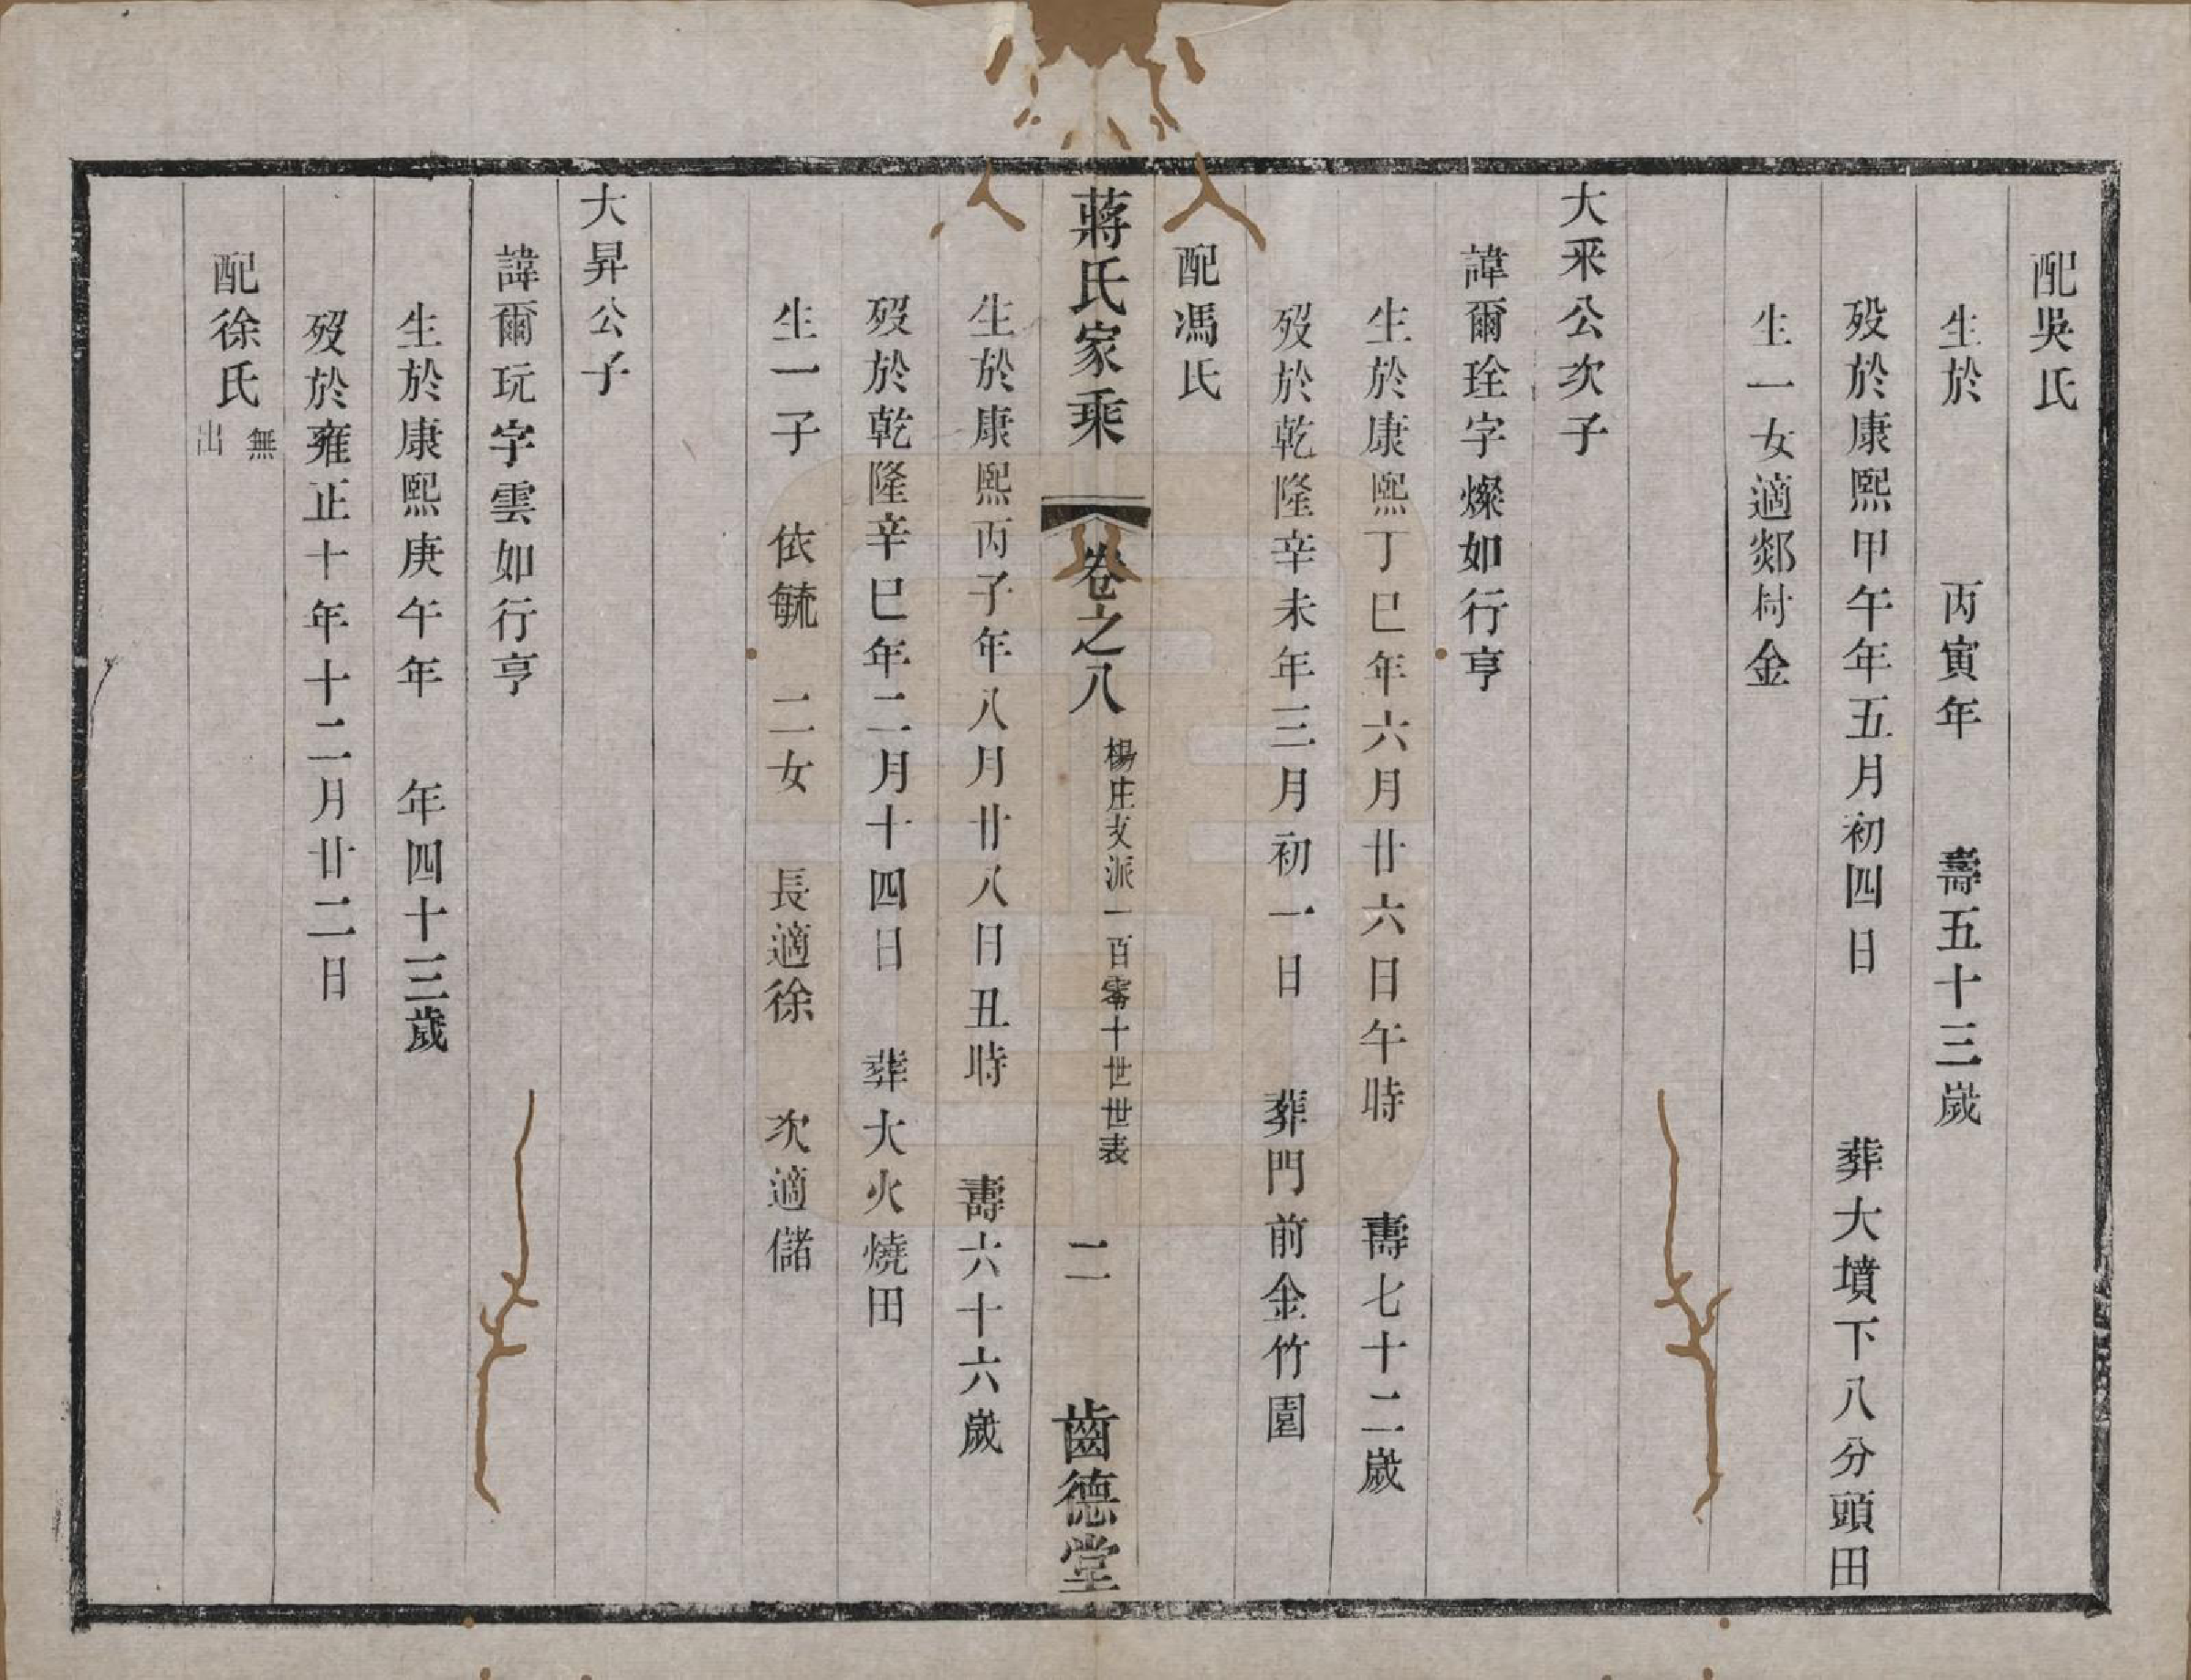 配吳氏
生於　丙寅年　壽五十三歲
歿於康熙甲午年五月初四日　葬大墳下八分頭田
生一女適鄒村金
大采公次子
諱爾琻字燦如行亨
生於康熙丁巳年六月廿六日午時　壽七十二歲
歿於乾隆辛未年三月初一日　葬門前金竹園
配馮氏
蔣氏家乘　卷之八　楊庄支派一百零十世世表　二　齒德堂
生於康熙丙子年八月廿八日丑時　壽六十六歲
歿於乾隆辛巳年二月十四日　葬大火燒田
生一子　依毓　二女　長適徐　次適儲
大昇公子
諱爾玩字雲如行亨
生於康熙庚午年　年四十三歲
歿於雍正十年十二月廿二日
配徐氏無出